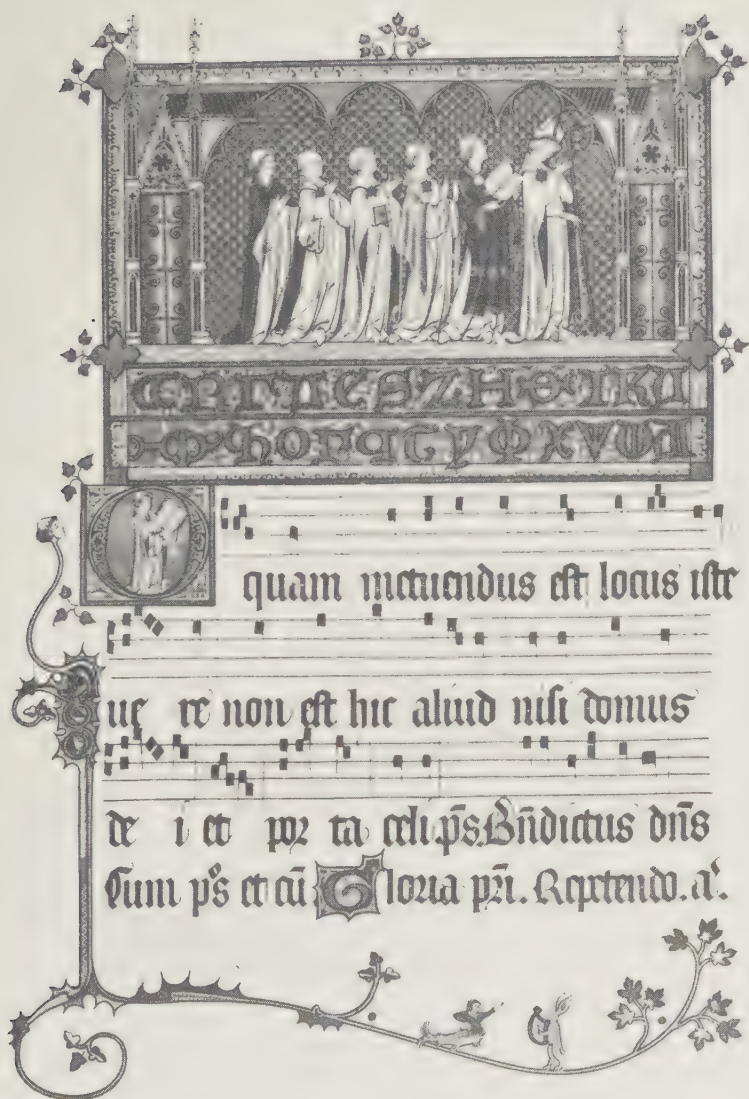 S Z H Θ I K
Φ X
O quam metuendus est locus iste
ue re non est hic aliud nisi domus
de i et por ta celi. p̄s. Bn̄dictus dn̄s
Cum p̄s et cū Gloria pr̄i. Repetendo. a̾.